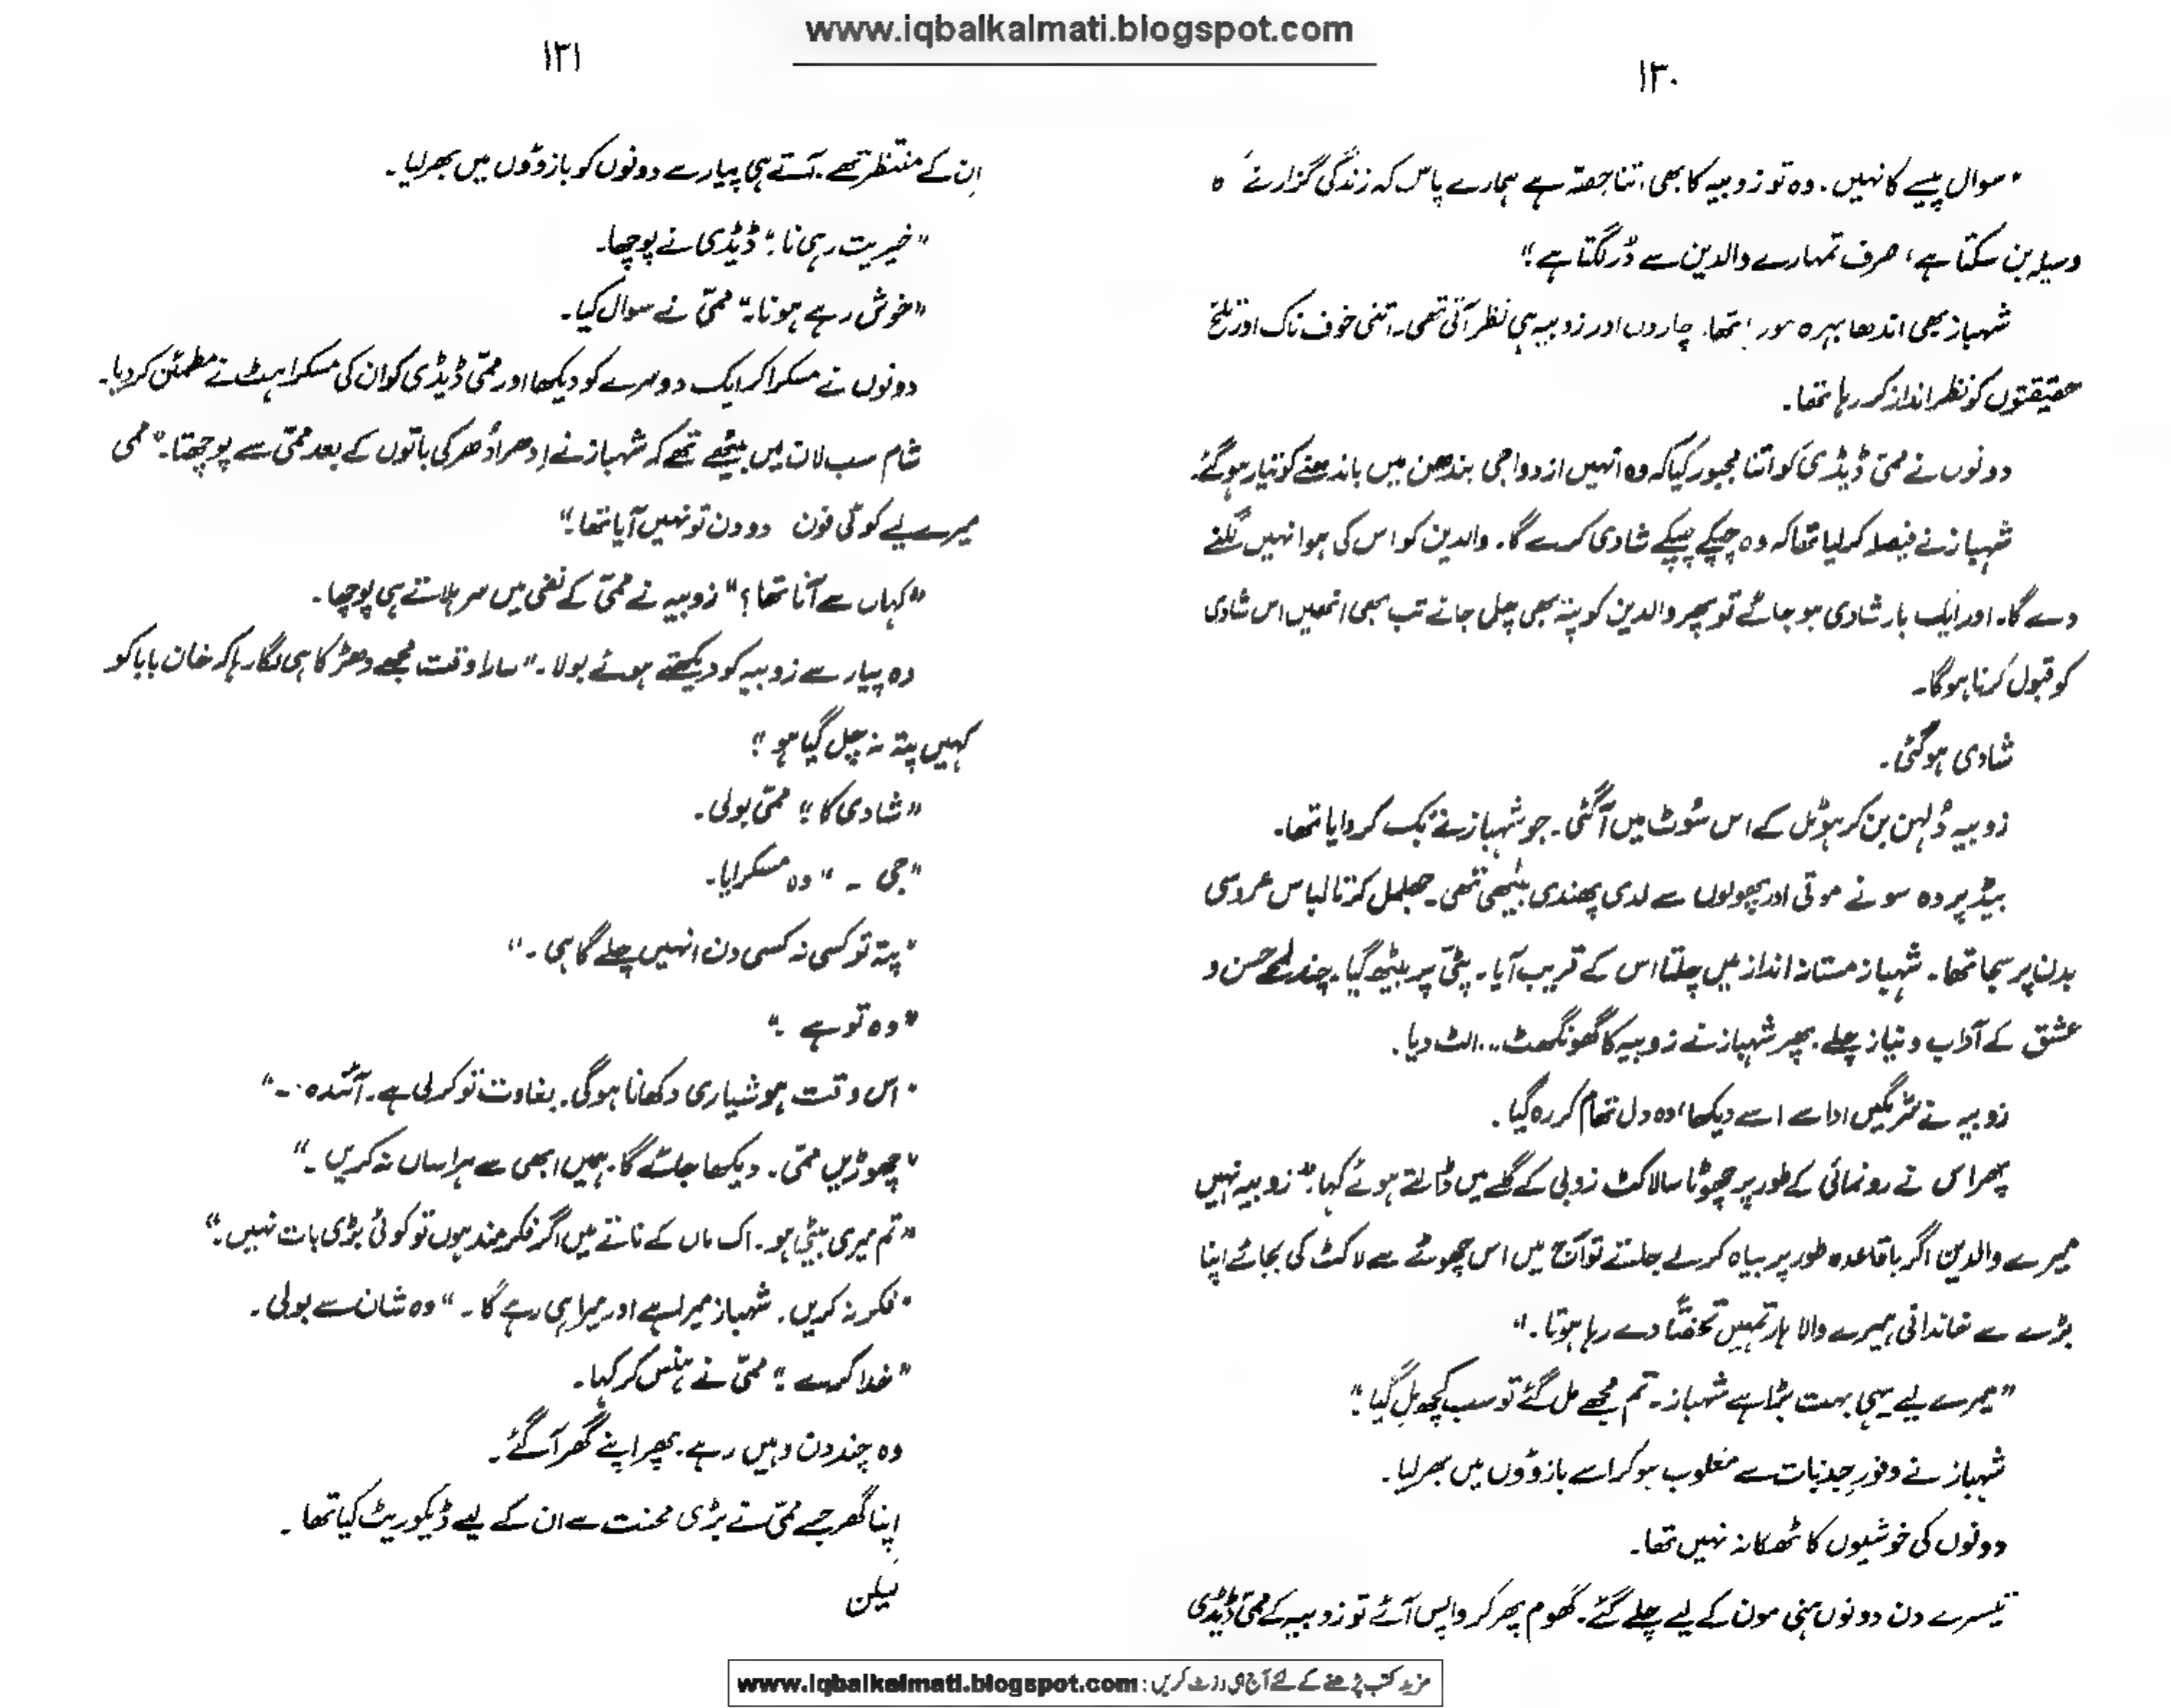 www.iqbalkalmati.blogspot.com
۱۳۰
"سوال پیسے کا نہیں۔ وہ تو زوبیہ کا بھی اتنا حصّہ ہے ہمارے پاس کہ زندگی گزارنے کا
وسیلہ بن سکتا ہے، صرف تمہارے والدین سے ڈر لگتا ہے"
شہباز بھی اندھا بہرہ ہو رہا تھا۔ چاروں اور زوبیہ ہی نظر آتی تھی۔ اتنی خوف ناک اور تلخ
حقیقتوں کو نظر انداز کر رہا تھا۔
دونوں نے ممّی ڈیڈی کو اتنا مجبور کیا کہ وہ انہیں ازدواجی بندھن میں باندھنے کو تیار ہو گئے۔
شہباز نے فیصلہ کر لیا تھا کہ وہ چپکے چپکے شادی کرے گا۔ والدین کو اس کی ہوا نہیں لگنے
دے گا۔ اور ایک بار شادی ہو جائے تو پھر والدین کو پتہ بھی چل جائے تب بھی انھیں اس شادی
کو قبول کرنا ہو گا۔
شادی ہو گئی۔
زوبیہ دُلہن بن کر ہوٹل کے اس سُوٹ میں آ گئی۔ جو شہباز نے بک کروایا تھا۔
بیڈ پر وہ سونے موتی اور پھولوں سے لدی پھندی بیٹھی تھی۔ جھلمل کرتا لباس عروسی
بدن پر سجا تھا۔ شہباز مستانہ انداز میں چلتا اس کے قریب آیا۔ پٹی پر بیٹھ گیا۔ چند لمحے حسن و
عشق کے آداب و نیاز چلے۔ پھر شہباز نے زوبیہ کا گھونگھٹ... الٹ دیا۔
زوبیہ نے شرمگیں ادا سے اسے دیکھا، وہ دل تھام کر رہ گیا۔
پھر اس نے رونمائی کے طور پر چھوٹا سا لاکٹ زوبی کے گلے میں ڈالتے ہوئے کہا۔ "زوبیہ نہیں
میرے والدین اگر باقاعدہ طور پر بیاہ کر لے جاتے تو آج میں اس چھوٹے سے لاکٹ کی بجائے اپنا
بڑے سے خاندانی ہیرے والا ہار تمہیں تحفتاً دے رہا ہوتا۔"
"میرے لیے یہی بہت بڑا ہے شہباز۔ تم مجھے مل گئے تو سب کچھ مِل گیا"
شہباز نے وفورِ جذبات سے مغلوب ہو کر اسے بازوؤں میں بھر لیا۔
دونوں کی خوشیوں کا ٹھکانہ نہیں تھا۔
تیسرے دن دونوں ہنی مون کے لیے چلے گئے۔ گھوم پھر کر واپس آئے تو زوبیہ کے ممّی ڈیڈی
۱۳۱
اِن کے منتظر تھے۔ آتے ہی پیار سے دونوں کو بازوؤں میں بھر لیا۔
"خیریت رہی نا" ڈیڈی نے پوچھا۔
"خوش رہے ہو نا" ممّی نے سوال کیا۔
دونوں نے مسکرا کر ایک دوسرے کو دیکھا اور ممّی ڈیڈی کو ان کی مسکراہٹ نے مطمئن کر دیا۔
شام سب لان میں بیٹھے تھے کہ شہباز نے اِدھر اُدھر کی باتوں کے بعد ممّی سے پوچھتا۔ "ممی
میرے لیے کوئی فون دو دن تو نہیں آیا تھا"
"کہاں سے آنا تھا؟" زوبیہ نے ممّی کے نفی میں سر ہلاتے ہی پوچھا۔
وہ پیار سے زوبیہ کو دیکھتے ہوئے بولا۔ "سارا وقت مجھے دھڑکا ہی لگا رہا کہ خان بابا کو
کہیں پتہ نہ چل گیا ہو"
"شادی کا" ممّی بولی۔
"جی ۔" وہ مسکرایا۔
"پتہ تو کسی نہ کسی دن انہیں چلے گا ہی ۔"
"وہ تو ہے ۔"
"اس وقت ہوشیاری دکھانا ہو گی۔ بغاوت تو کر لی ہے۔ آئندہ ۔۔"
"چھوڑیں ممّی۔ دیکھا جائے گا۔ ہمیں ابھی سے ہراساں نہ کریں ۔"
"تم میری بیٹی ہو۔ اک ماں کے ناتے میں اگر فکر مند ہوں تو کوئی بڑی بات نہیں"
"فکر نہ کریں۔ شہباز میرا ہے اور میرا ہی رہے گا ۔" وہ شان سے بولی۔
"خدا کرے" ممّی نے ہنس کر کہا۔
وہ چند دن وہیں رہے۔ پھر اپنے گھر آ گئے۔
اپنا گھر جسے ممّی نے بڑی محنت سے ان کے لیے ڈیکوریٹ کیا تھا۔
لیکن
مزید کتب پڑھنے کے لئے آج ہی وزٹ کریں: www.iqbalkalmati.blogspot.com